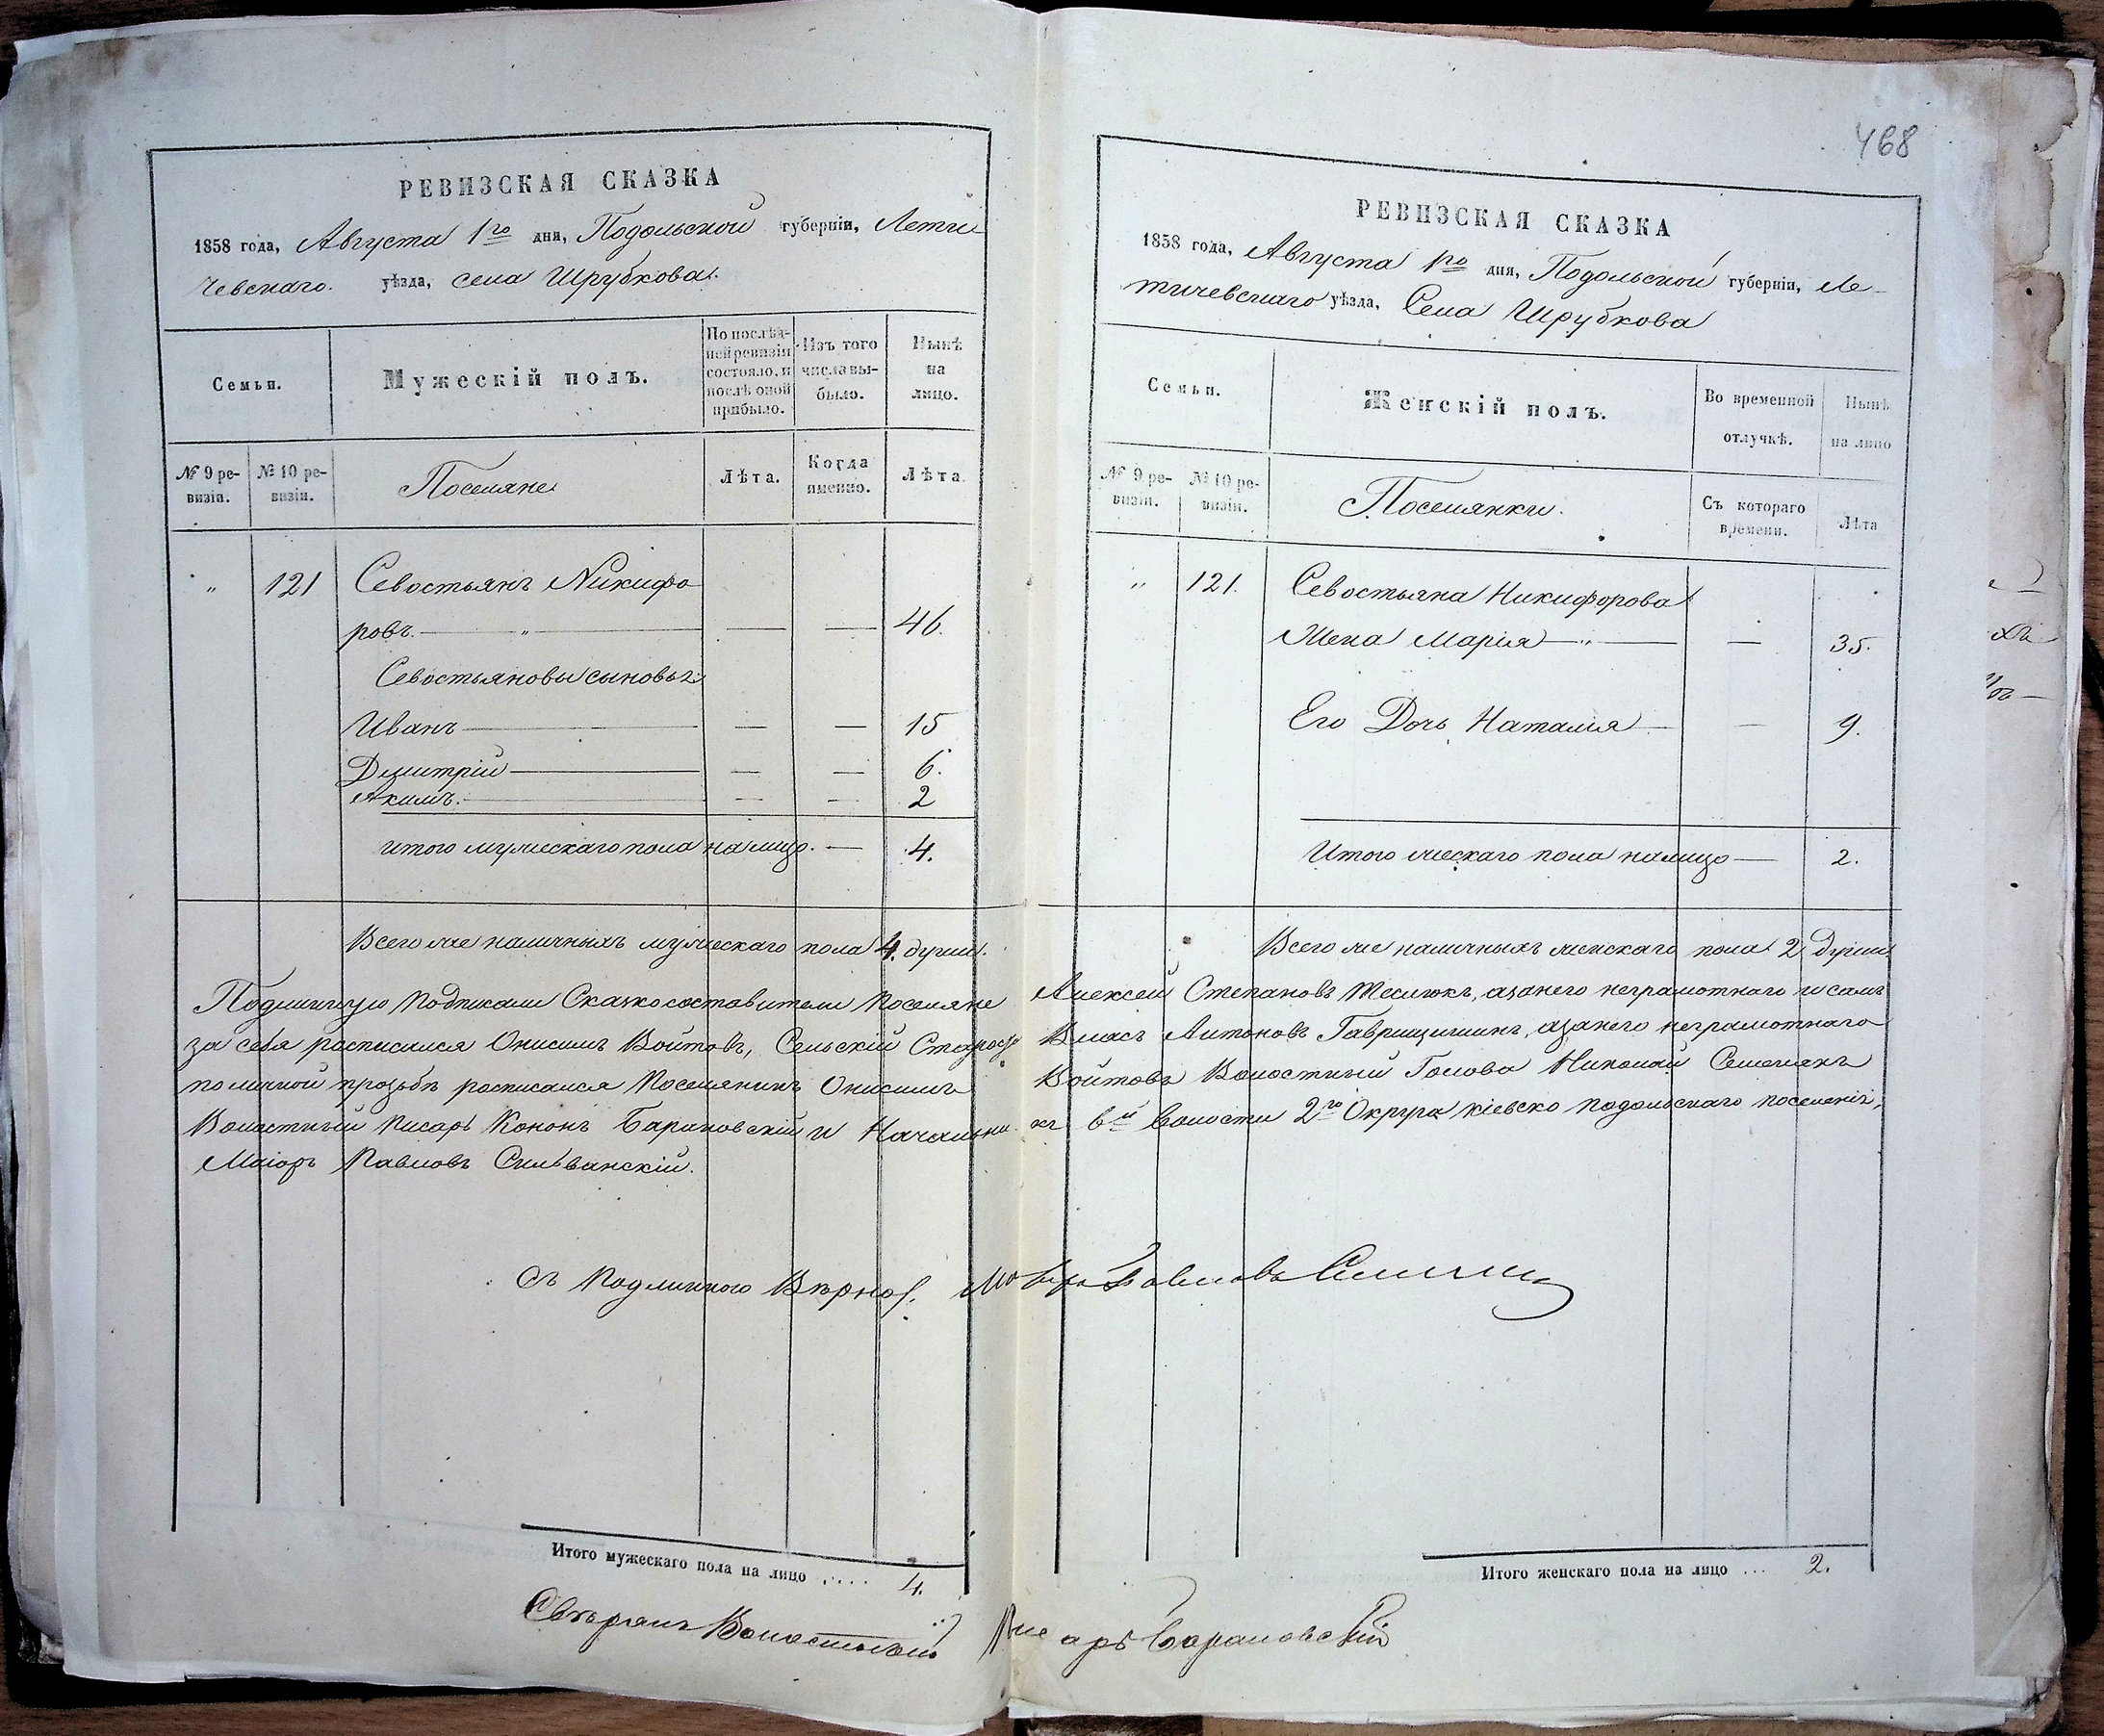 РЕВИЗСКАЯ СКАЗКА
1858 года, Августа 1го дня, Подольской губерніи, Лети-
чевскаго уѣзда, села Шрубкова.
Семьи.
Мужескій полъ.
По послѣд-
ней ревизіи
состояло, и
послѣ оной
прибыло.
Изъ того
числа вы-
было.
Нынѣ
на
лицо.
№ 9 ре-
визіи.
№ 10 ре-
визіи.
Поселяне
Лѣта.
Когда
именно.
Лѣта.
" 121 Севостьянъ Никифо
ровъ. — " — — — 46.
Севостьяновы сыновья
Иванъ — — — 15
Дмитрій — — — 6.
Акимъ. — — — 2
итого мужескаго пола на лицо. — 4.
Всего же наличныхъ мужескаго пола 4. души.
Подлинную подписали Сказкосоставители поселяне
за себя росписался Онисимъ Войтовъ, Сельскій Староста
по личной прозьбѣ росписался Поселянинъ Онисимъ
Волостный Писарь Кононъ Барановскій и Начальни
Маіоръ Павловъ Сильванскій.
Съ подлиннымъ Вѣрно:
Итого мужескаго пола на лицо .... 4.
Свѣрялъ Волостный
468
РЕВИЗСКАЯ СКАЗКА
1858 года, Августа 1го дня, Подольской губерніи, Ле-
тичевскаго уѣзда, Села Шрубкова
Семьи.
Женскій полъ.
Во временной
отлучкѣ.
Нынѣ
на лицо
№ 9 ре-
визіи.
№ 10 ре-
визіи.
Поселянки.
Съ котораго
времени.
Лѣта
" 121. Севостьяна Никифорова
Жена Марія — " — — 35.
Его Дочь Наталія — — 9.
Итого женскаго пола налицо — 2.
Всего же наличныхъ женскаго пола 2 души
Алексей Степановъ, а за него неграмотнаго и самъ
Власъ Антоновъ Гаврищишинъ, а за него неграмотнаго
Войтовъ Волостный Голова Николай Семенякъ
къ 6й волости 2го Округа Кіевско Подольскаго поселенія,
Маіоръ Павловъ
Итого женскаго пола на лицо ... 2.
Писарь Барановскій